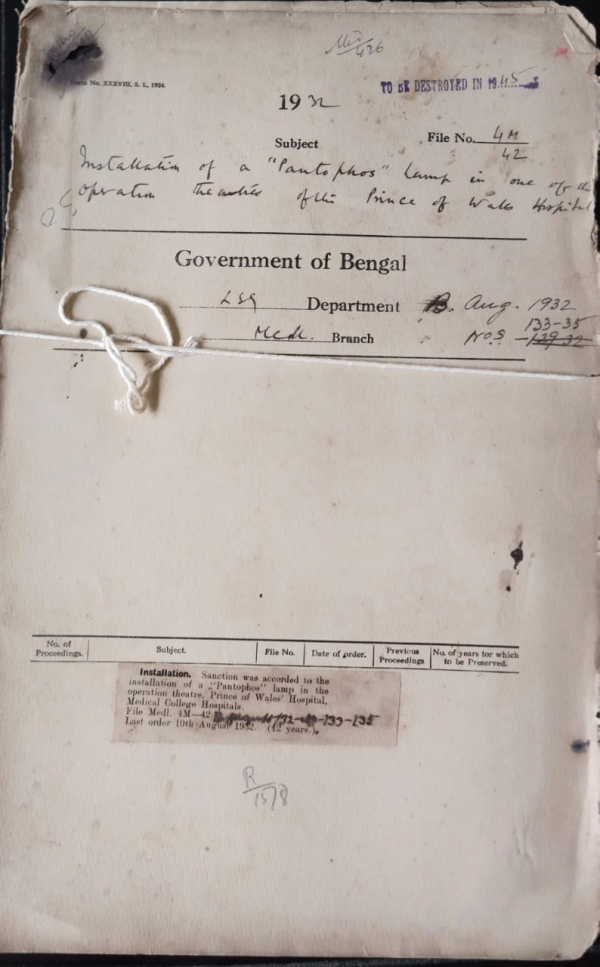 Med/426
Form No. XXXVIII, S. L., 1924.
TO BE DESTROYED IN 1945
1932
Subject
File No. 4M
42
Installation of a "Pantophos" lamp in one of the
operation theatres of the Prince of Wales Hospital
Government of Bengal
LSG Department B. Aug. 1932
133-35
Medl. Branch Nos
No. of Proceedings. Subject. File No. Date of order. Previous Proceedings No. of years for which to be Preserved.
Installation. Sanction was accorded to the
installation of a "Pantophos" lamp in the
operation theatre, Prince of Wales' Hospital,
Medical College Hospitals.
File Medl. 4M—42 B August/32 133-135
Last order 10th August 1932. (12 years.)
R
15/8